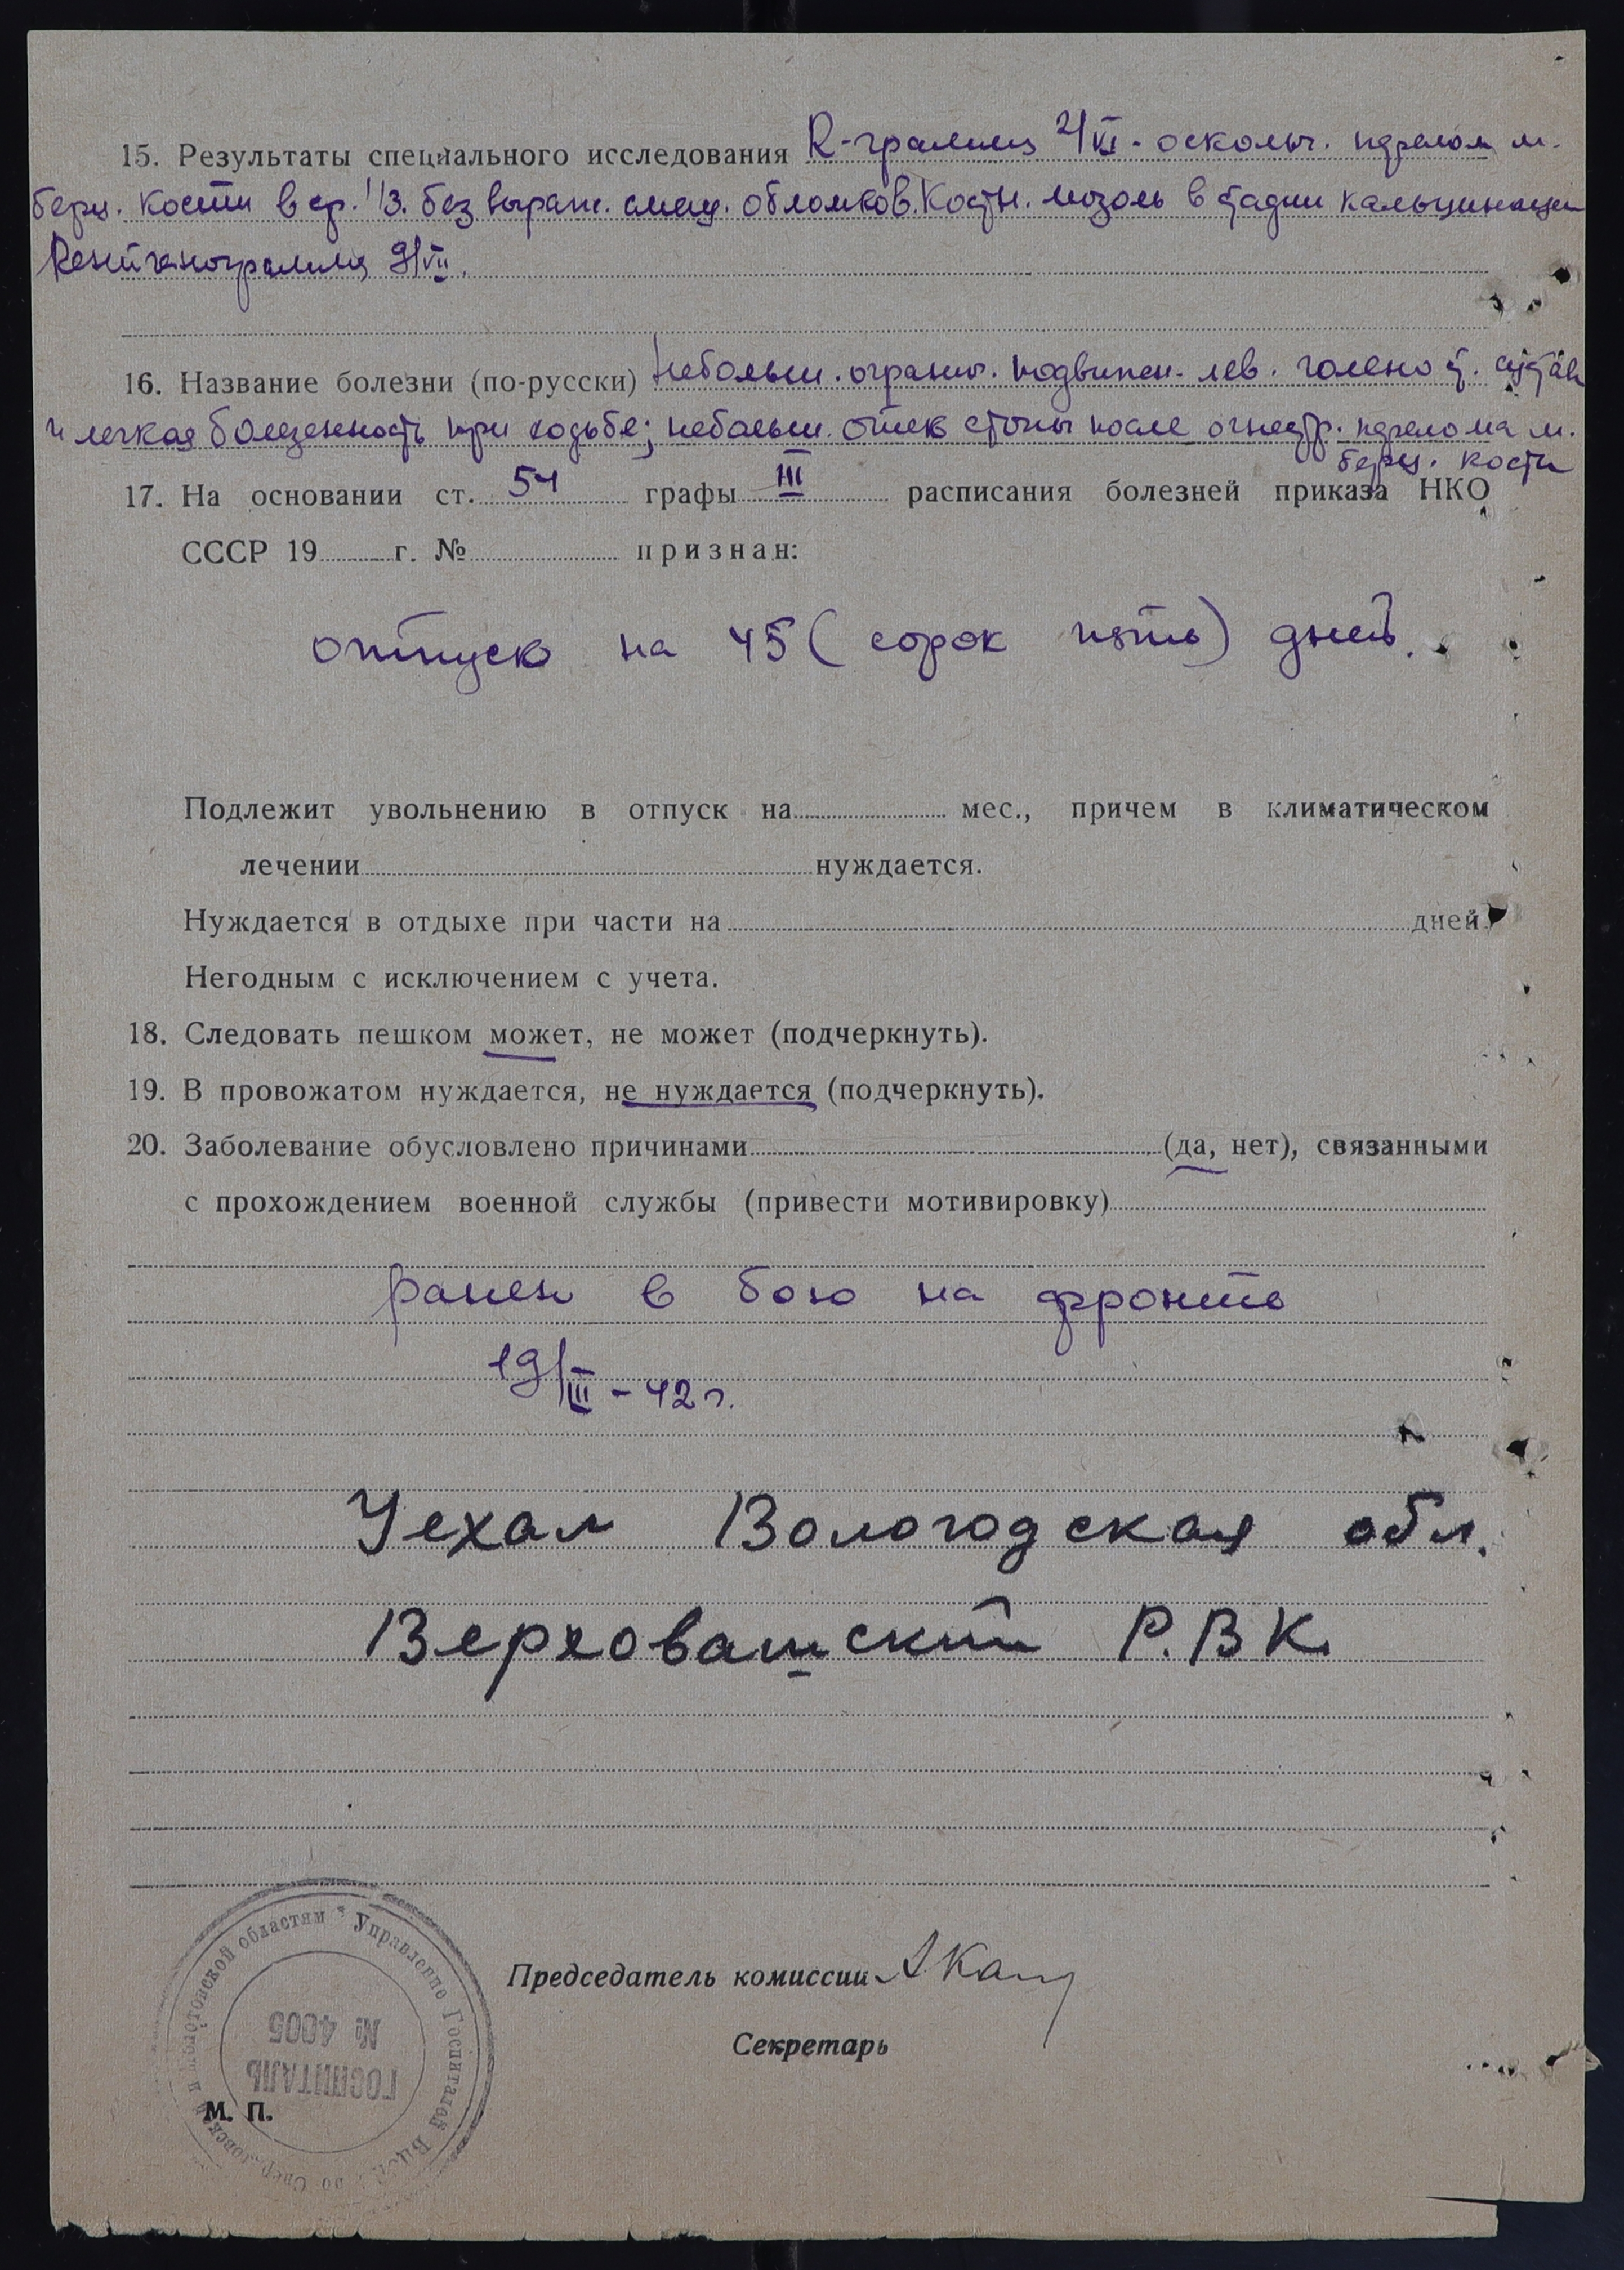 15. Результаты специального исследования R-грамма 2/VI - осколч. перелом м.
берц. кости в ср. 1/3. без выраж. смещ. обломков. Костн. мозоль в стадии кальцинации
Рентгенограмма 9/VII.
16. Название болезни (по-русски) Небольш. огранич. подвижн. лев. голеност. сустава
и легкая болезненность при ходьбе; небольш. отек стопы после огнестр. перелома м.
берц. кости
17. На основании ст. 54 графы III расписания болезней приказа НКО
СССР 19 г. № признан:
отпуск на 45 (сорок пять) дней.
Подлежит увольнению в отпуск на мес., причем в климатическом
лечении нуждается.
Нуждается в отдыхе при части на дней.
Негодным с исключением с учета.
18. Следовать пешком может, не может (подчеркнуть).
19. В провожатом нуждается, не нуждается (подчеркнуть).
20. Заболевание обусловлено причинами (да, нет), связанными
с прохождением военной службы (привести мотивировку)
ранен в бою на фронте
19/III - 42 г.
Уехал Вологодская обл.
Верховашский Р.В К.
Председатель комиссии
Секретарь
М. П.
Управление Госпиталей
областям
ГОСПИТАЛЬ
№ 4005